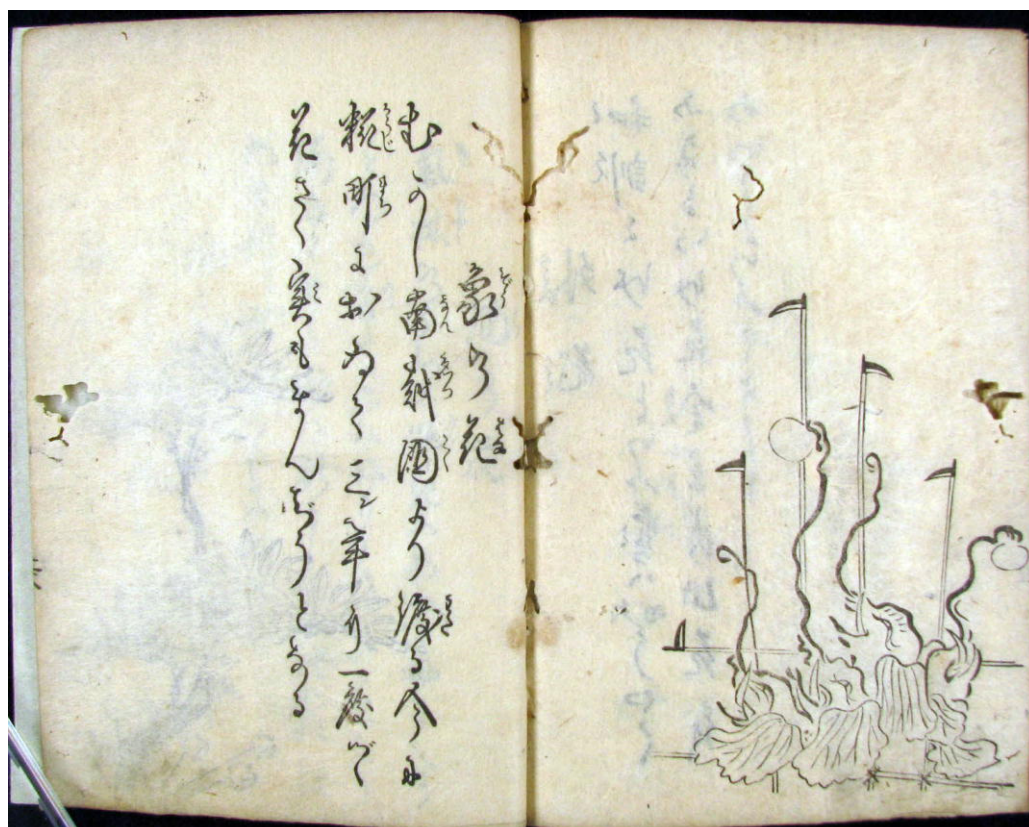 象の花
むかし南越国より渡る今に
糀町におゐて三年に一度づゝ
花さく実もまんぢうとなる